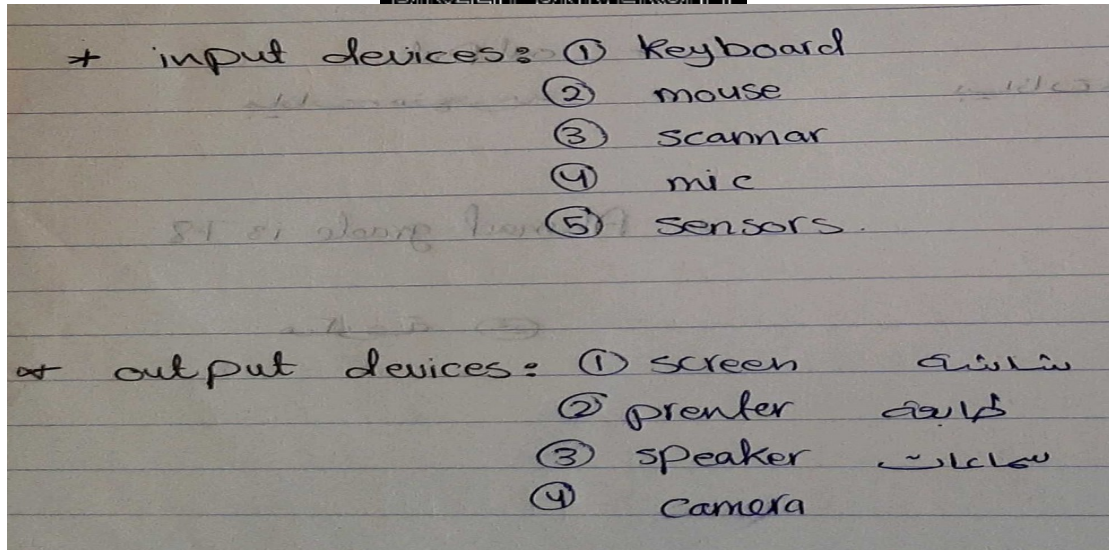 * input devices: ① keyboard
② mouse
③ scannar
④ mic
⑤ sensors.
* output devices: ① screen شاشة
② prenter طابعة
③ speaker سماعات
④ camera